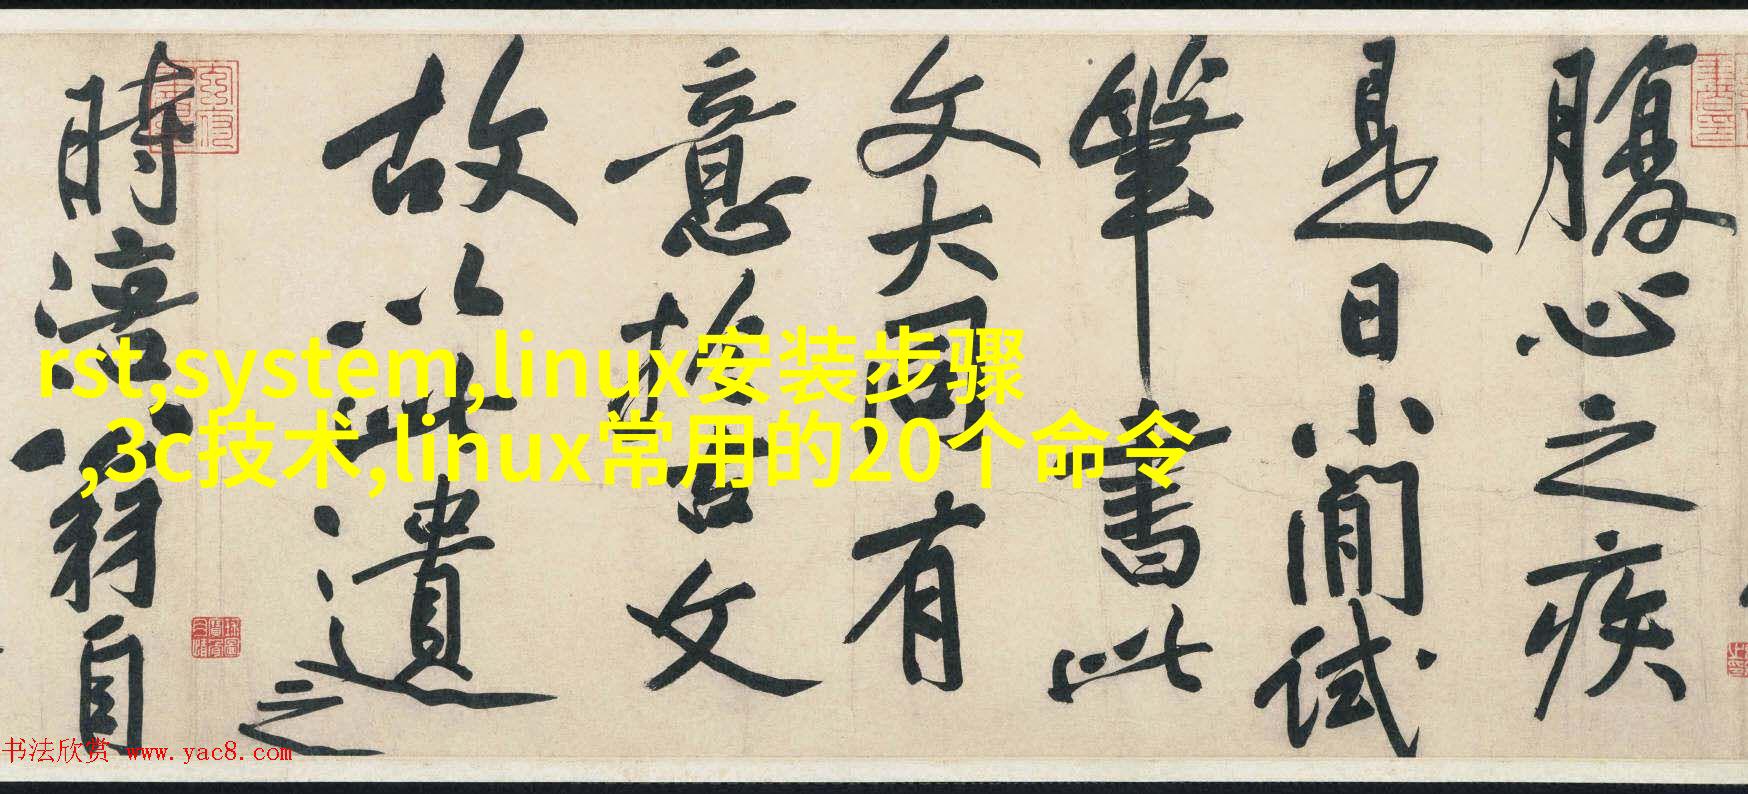 腹心之疾
是日小閒試
筆書此
文大同有
意於古文
故以此遺
之
時涪翁自
rst,system,linux安装步骤
,3c技术,linux常用的20个命令
书法欣赏 www.yac8.com